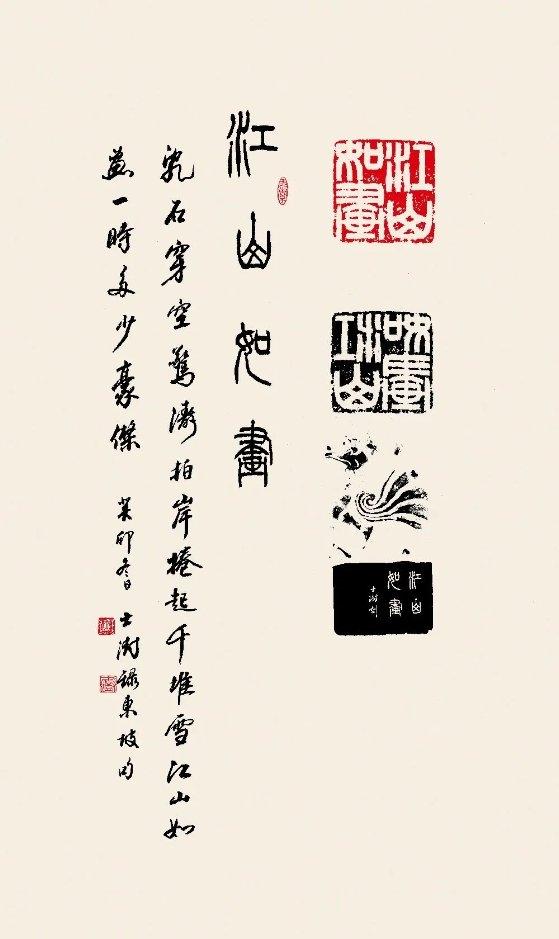 江山
如畫
江山
如畫
江山
如畫
士澍刻
江山如畫
亂石穿空驚濤拍岸捲起千堆雪江山如
畫一時多少豪傑 癸卯冬日 士澍錄東坡句